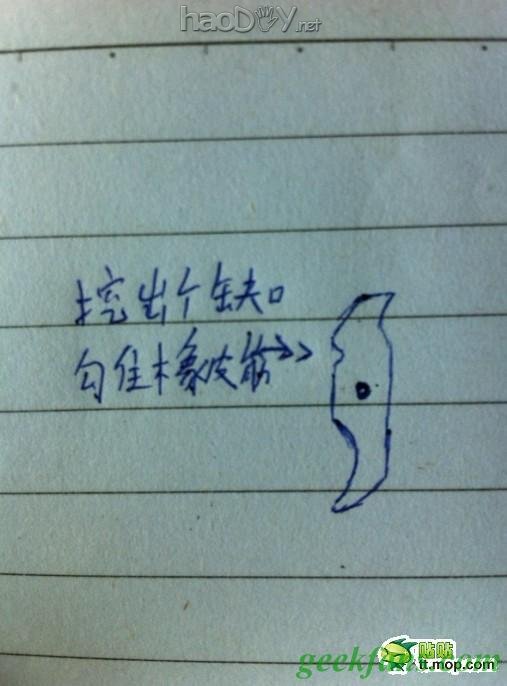 haoDIY.net
挖出个缺口
勾住橡皮筋
贴贴
tt.mop.com